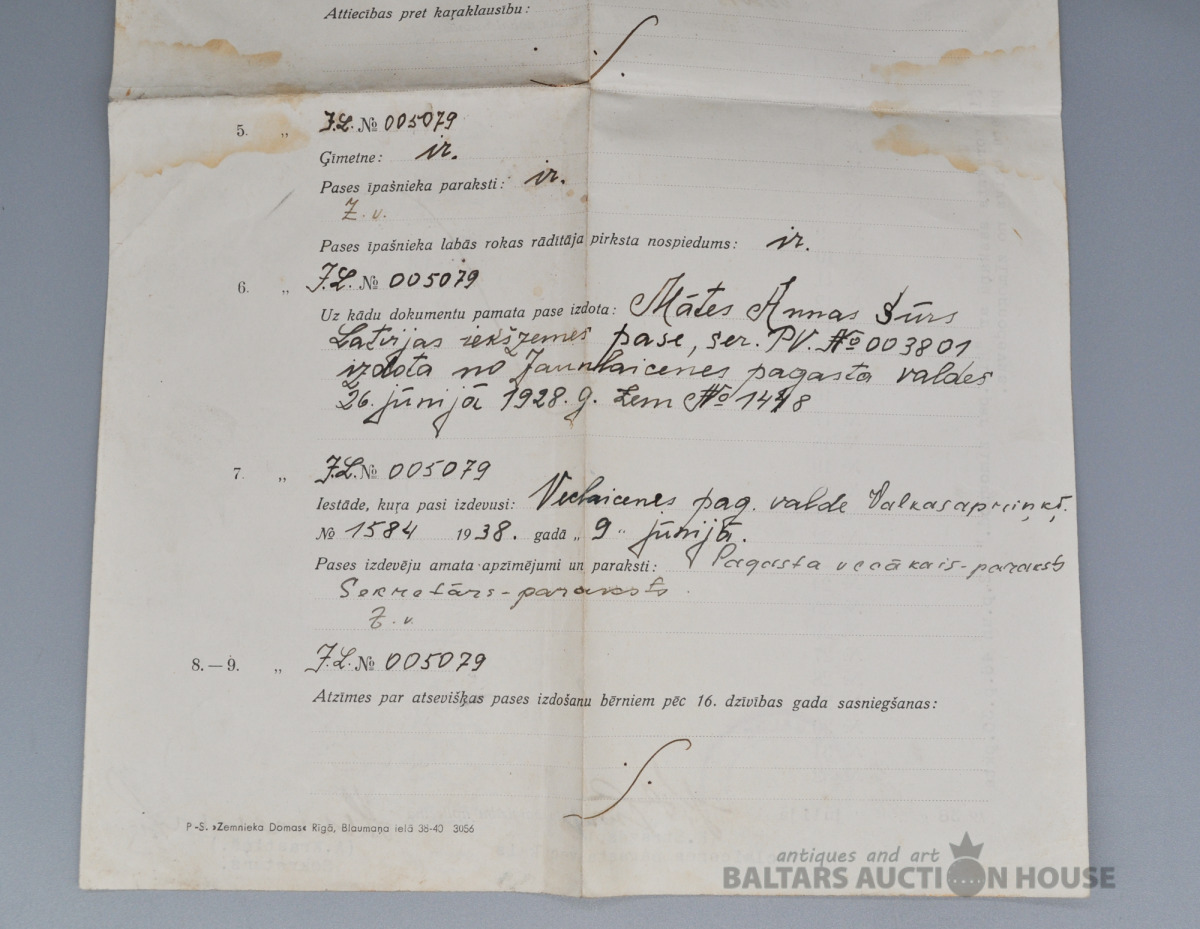 Attiecības pret kaŗaklausību:
5. „ J.L. № 005079
Ģimetne: ir.
Pases īpašnieka paraksti: ir.
Z. v.
Pases īpašnieka labās rokas rādītāja pirksta nospiedums: ir.
6. „ J.L. № 005079
Uz kādu dokumentu pamata pase izdota: Mātes Annas Sūrs
Latvijas iekšzemes pase, ser. PV. № 003801
izdota no Jaunlaicenes pagasta valdes
26. jūnijā 1928. g. zem № 1448
7. „ J.L. № 005079
Iestāde, kuŗa pasi izdevusi: Veclaicenes pag. valde Valkas apriņķī.
№ 1584 1938. gadā „ 9 “ jūnijā.
Pases izdevēju amata apzīmējumi un paraksti: Pagasta vecākais - paraksts
Sekretārs - paraksts
Z. v.
8.—9. „ J.L. № 005079
Atzīmes par atsevišķas pases izdošanu bērniem pēc 16. dzīvības gada sasniegšanas:
P.-S. »Zemnieka Domas« Rīgā, Blaumaņa ielā 38-40 3056
antiques and art
BALTARS AUCTION HOUSE